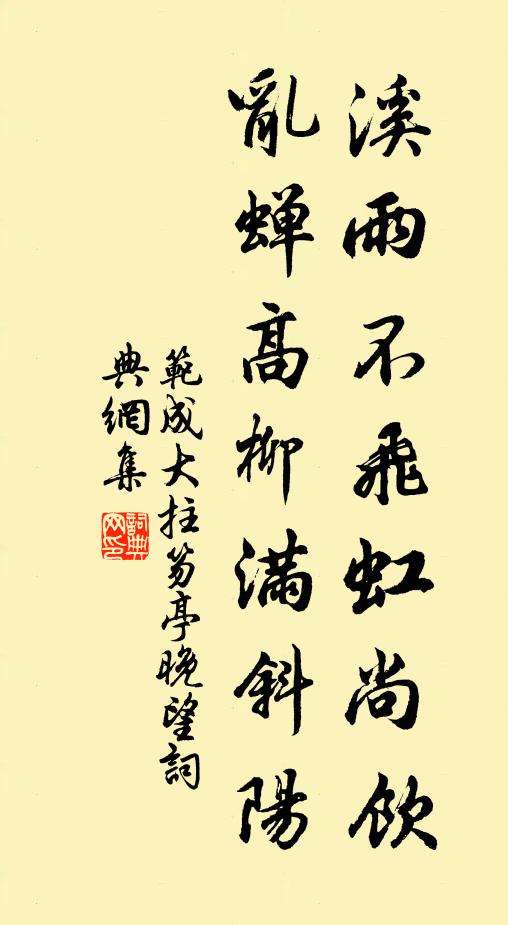 溪雨不飛虹尚飲
亂蟬高柳滿斜陽
範成大拄笏亭晚望詞
典網集
詞典网印